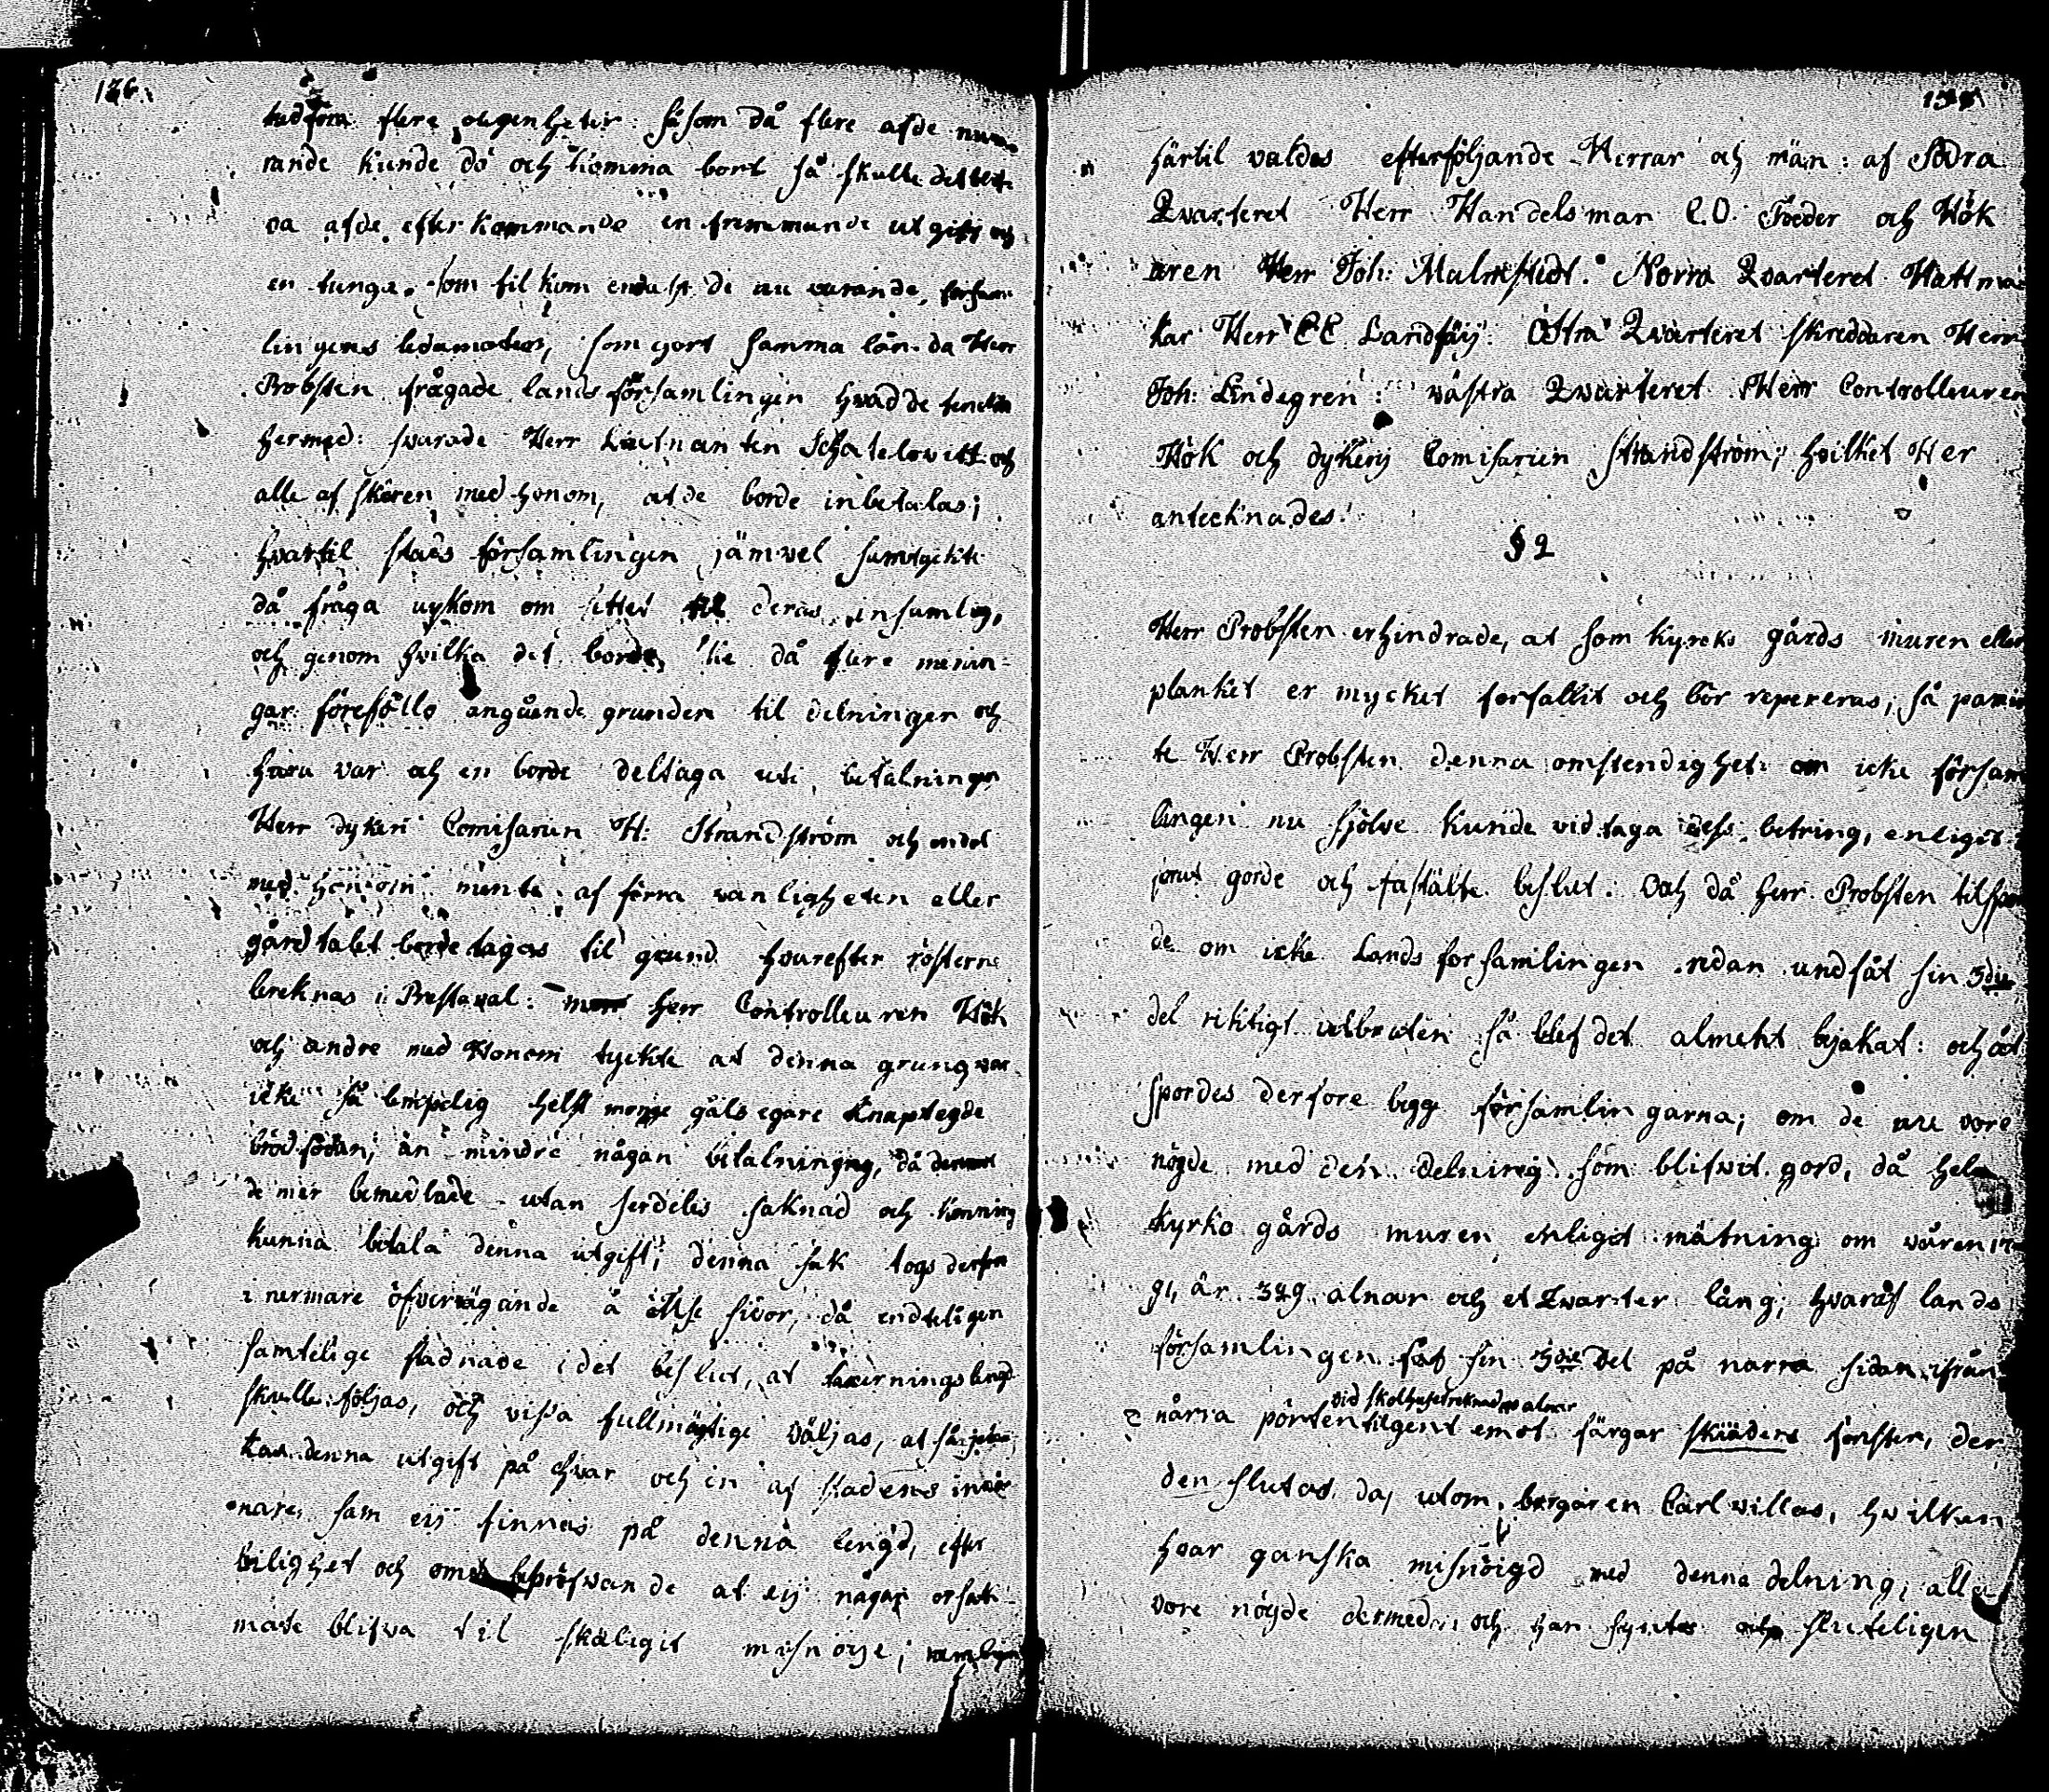 126.
medföra flere olegenheter: såsom då flere af de nuva-
rande kunde dö och komma bort så skulle det blif-
va af de efterkommande en fremmande utgift och
en tunga, som tilkom endast de nu varande försam-
lingens ledamoter, som gort samma lån. da Herr
Probsten frågade landsförsamlingen hvad de tenckte
hermed: svarade Herr Leutnanten och
alle af skären med honom, at de borde inbetalas;
hvartil stads församlingen jämvel samtyckte
då fråga upkom om settet til deras insamling,
och genom hvilka det borde ske då flere menin-
gar föreföllo angående grunden til delningen och
huru var och en borde deltaga uti betalningen
Herr dykeri Comisarien H: Strandström och endel
med honom mente af förra vanligheten eller
gårdtalet borde tagas til grund hvarefter rösterne
bereknas i Prestaval: Herr Controlleuren Hök
och andre med Honom tyckte at denna grung var
icke så lempelig helst monge gåls egare knapt egde
brödfödan, än mindre någon betalningng, då
de mer bemedlade utan serdeles saknad och kenning
kunna betala denna utgift; denna sak togs derfore
i nermare öfvervägande å ömse sidor, då endteligen
samtelige stadnade i det beslut, at taxernings lengd
skulle följas, och vissa fullmägtige väljas, at
denna utgift på hvar och en af stadens invå-
nare, som eij finnas på denna lengd, efter
bilighet och omt bepröfvande at eij någon orsak
måte blifva til skäligit misnöje; nemligen
härtil valdes efterföljande Herrar och män: af Södra
Qvarteret Herr Handelsman C.O. Sweder och Hök
aren Herr Joh: Malmstedt. Norra Qvarteret Hattma
kar Herr C C Landtsäij. Östra Qvarteret skreddaren Herr
Joh: Lindegren: västra Qvarteret Herr Controlleuren
Hök och dykerij Comisarien Strandström, hvilket Her
antecknades.
§ 2
Herr Probsten erhindrade, at som kyrcko gårds muren eller
planket er mycket forfallit och bör repereras, så pamin
te Herr Probsten denna omstendighet: om icke försam
lingen nu sjölve kunde vid taga dess betring, enligit
forut gorde och fastälte beslut. Och då Herr Probsten tilspor
de om icke Lands forsamlingen redan undfåt sin 3die
del riktigt utbruten så blef det almeht bejakat: och åt
spordes derfore begge församlingarna; om de nu vore
nögde med den delning som blifvit gord, då hela
Kyrko gårds muren enligit mätning om våren 17
91, är 329 alnar och et Qvarter lång; hvaraf lands
församlingen fåt sin 3die del på narra sidan, ifrån
vid skolhuset reknad alnar
norra pörten tilgent emot färgar skääders fönster, der
den slutas, da, utom, borgaren Carl villas, hvilken
hvar ganska misnöigd med denna delning, alle
vore nögde dermed, och han syntes och sluteligen